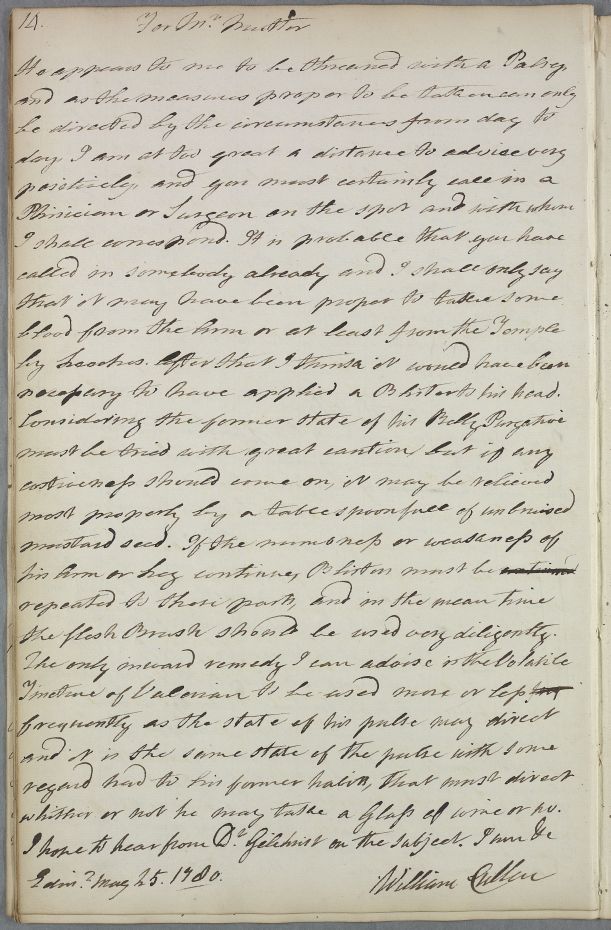 14.
For Mr. Mutter
He appears to me to be threaned with a Palsey
and as the measures proper to be taken can only
be directed by the circumstances from day to
day I am at too great a distance to advise very
positively, and you must certainly call in a
Phisician or Surgeon on the spot and with whom
I shall correspond. It is probable that you have
called in somebody already and I shall only say
that it may have been proper to take some
blood from the Arm or at least from the Temple
by Leeches. After that I think it would have been
necessary to have applied a Blister to his head.
Considering the former state of his Belly Purgative
must be tried with great caution, but if any
costiveness should come on, it may be relieved
most properly by a tablespoonfull of unbruised
mustard seed. If the numbness or weakness of
his Arm or Leg continue, Blisters must be
repeated to these parts, and in the mean time
the flesh Brush should be used very diligently.
The only inward remedy I can advise is the Volatile
Tincture of Valerian to be used more or less
frequently as the state of his pulse may direct
and it is the same state of the pulse with some
regard had to his former habits, that must direct
whither or not he may take a Glass of wine or no.
I hope to hear from Dr. Gilchrist on the subject. I am &c
Edinr. May 25. 1780. William Cullen